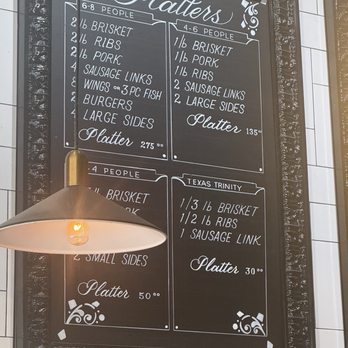 Platters
6-8 PEOPLE
2 lb BRISKET
2 lb RIBS
lb PORK
SAUSAGE LINKS
WINGS OR 3 PC FISH
2 BURGERS
4 LARGE SIDES
Platter 275.00
4-6 PEOPLE
1 lb BRISKET
1 lb PORK
1 lb RIBS
2 SAUSAGE LINKS
2 LARGE SIDES
Platter 135.00
4 PEOPLE
lb BRISKET
lb RIBS
2 SMALL SIDES
Platter 50.00
TEXAS TRINITY
1/3 lb BRISKET
1/2 lb RIBS
1 SAUSAGE LINK
Platter 30.00